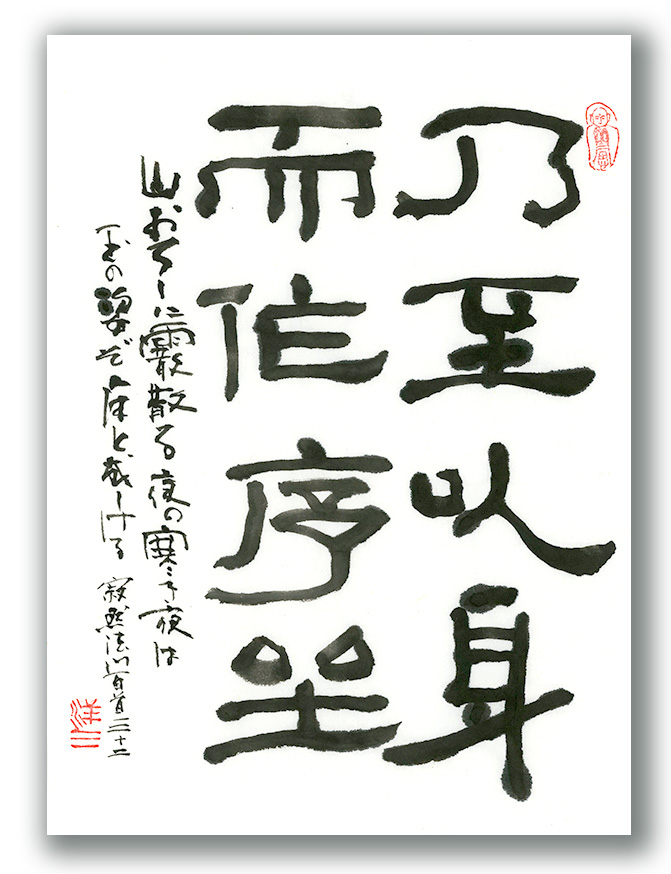 乃至以身
而作序坐
山おろしに霰散る夜の寒き夜は
玉の姿ぞ床と成しける 寂然法門百首